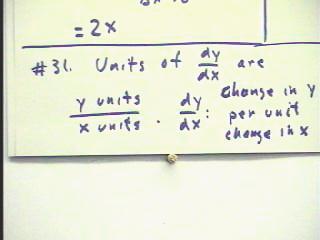 = 2x
#31. Units of dy/dx are
y units/x units . dy/dx: change in y
per unit
change in x